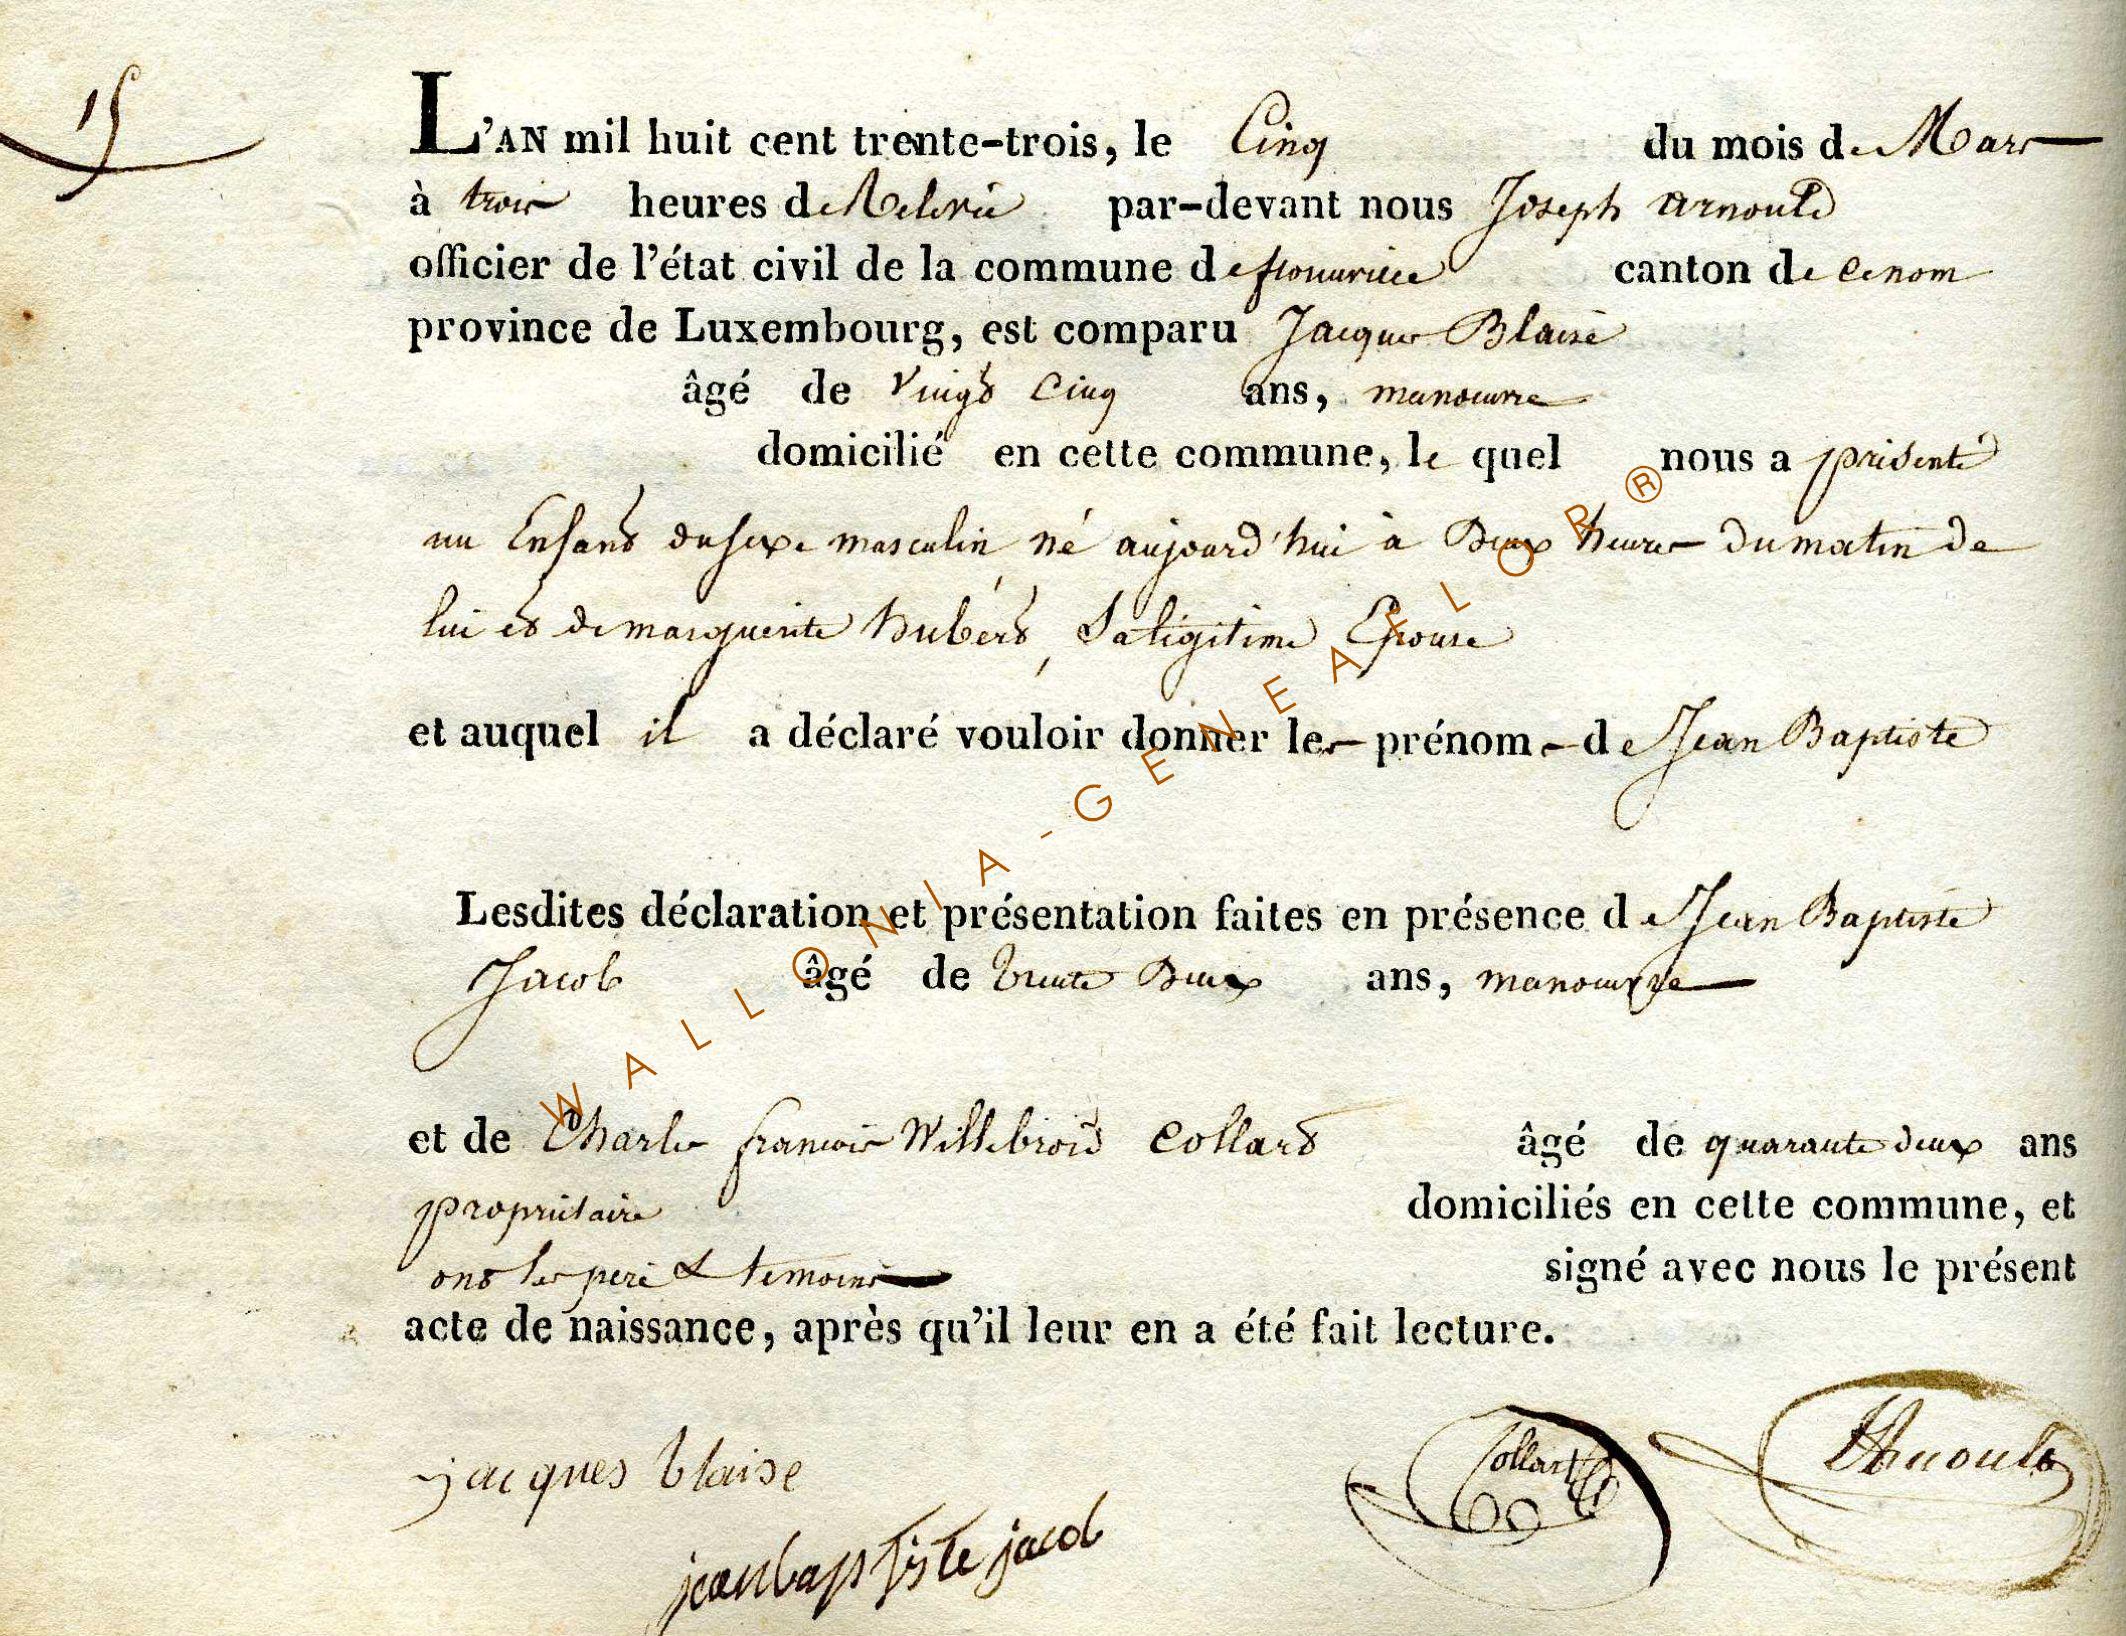 15
L'AN mil huit cent trente-trois, le Cinq du mois de Mars
à trois heures de Relevée par-devant nous Joseph Arnould
officier de l'état civil de la commune de florenville canton de ce nom
province de Luxembourg, est comparu Jacques Blaise
âgé de vingt Cinq ans, manoeuvre
domicilié en cette commune, le quel nous a présenté
un Enfant du sexe masculin né aujourd'hui à Deux heures du matin de
lui et de marguerite hubert, Sa légitime Epouse
et auquel il a déclaré vouloir donner les prénoms de Jean Baptiste
Lesdites déclaration et présentation faites en présence de Jean Baptiste
Jacob âgé de trente Deux ans, manoeuvre
et de Charles françois Willebrord Collard âgé de quarante deux ans
propriétaire domiciliés en cette commune, et
ont les père & temoins signé avec nous le présent
acte de naissance, après qu'il leur en a été fait lecture.
jacques blaise
Collart
Arnould
jean baptiste jacob
WALLONIA-GENEALOR®